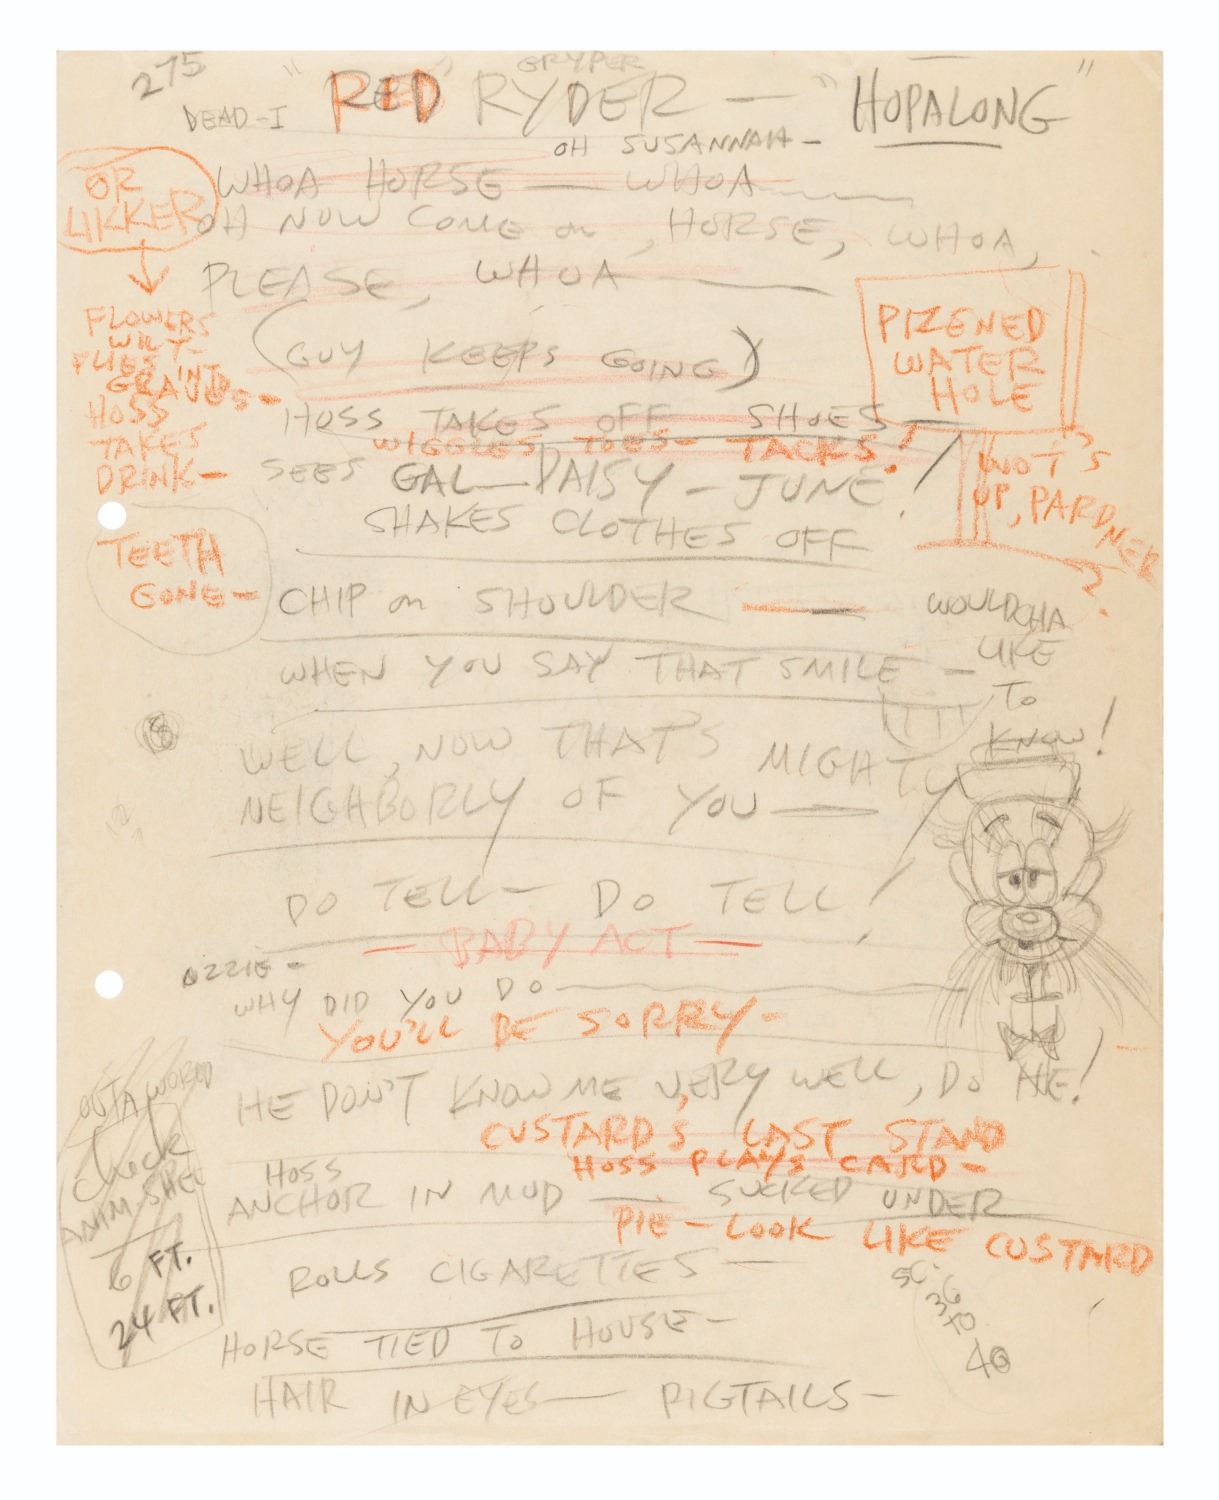 275
GRYPER
" RED RYDER — " HOPALONG "
DEAD-I
OH SUSANNAH —
OR
LIKKER
WHOA HORSE — WHOA
OH NOW COME on, HORSE, WHOA,
PLEASE, WHOA
(GUY KEEPS GOING)
FLOWERS
WILT —
FLIES INTO
GRAVES —
HOSS
TAKES
DRINK —
PIZENED
WATER
HOLE
WOT'S
UP, PARDNER
?
HOSS TAKES OFF SHOES —
WIGGLES TOES — TACKS!
SEES GAL — DAISY — JUNE!
SHAKES CLOTHES OFF
TEETH
GONE —
CHIP on SHOULDER
WOULDCHA
LIKE
TO
KNOW!
WHEN YOU SAY THAT SMILE —
WELL, NOW THAT'S MIGHTY
NEIGHBORLY OF YOU —
DO TELL — DO TELL!
— BABY ACT —
OZZIE —
WHY DID YOU DO
YOU'LL BE SORRY —
HE DON'T KNOW ME VERY WELL, DO HE!
CUSTARD'S LAST STAND
HOSS PLAYS CARD —
HOSS
ANCHOR IN MUD — SUCKED UNDER
PIE — LOOK LIKE CUSTARD
OUTA WORLD
Check
6 FT.
24 FT.
ROLLS CIGARETTES —
40
HORSE TIED TO HOUSE —
HAIR IN EYES — PIGTAILS —